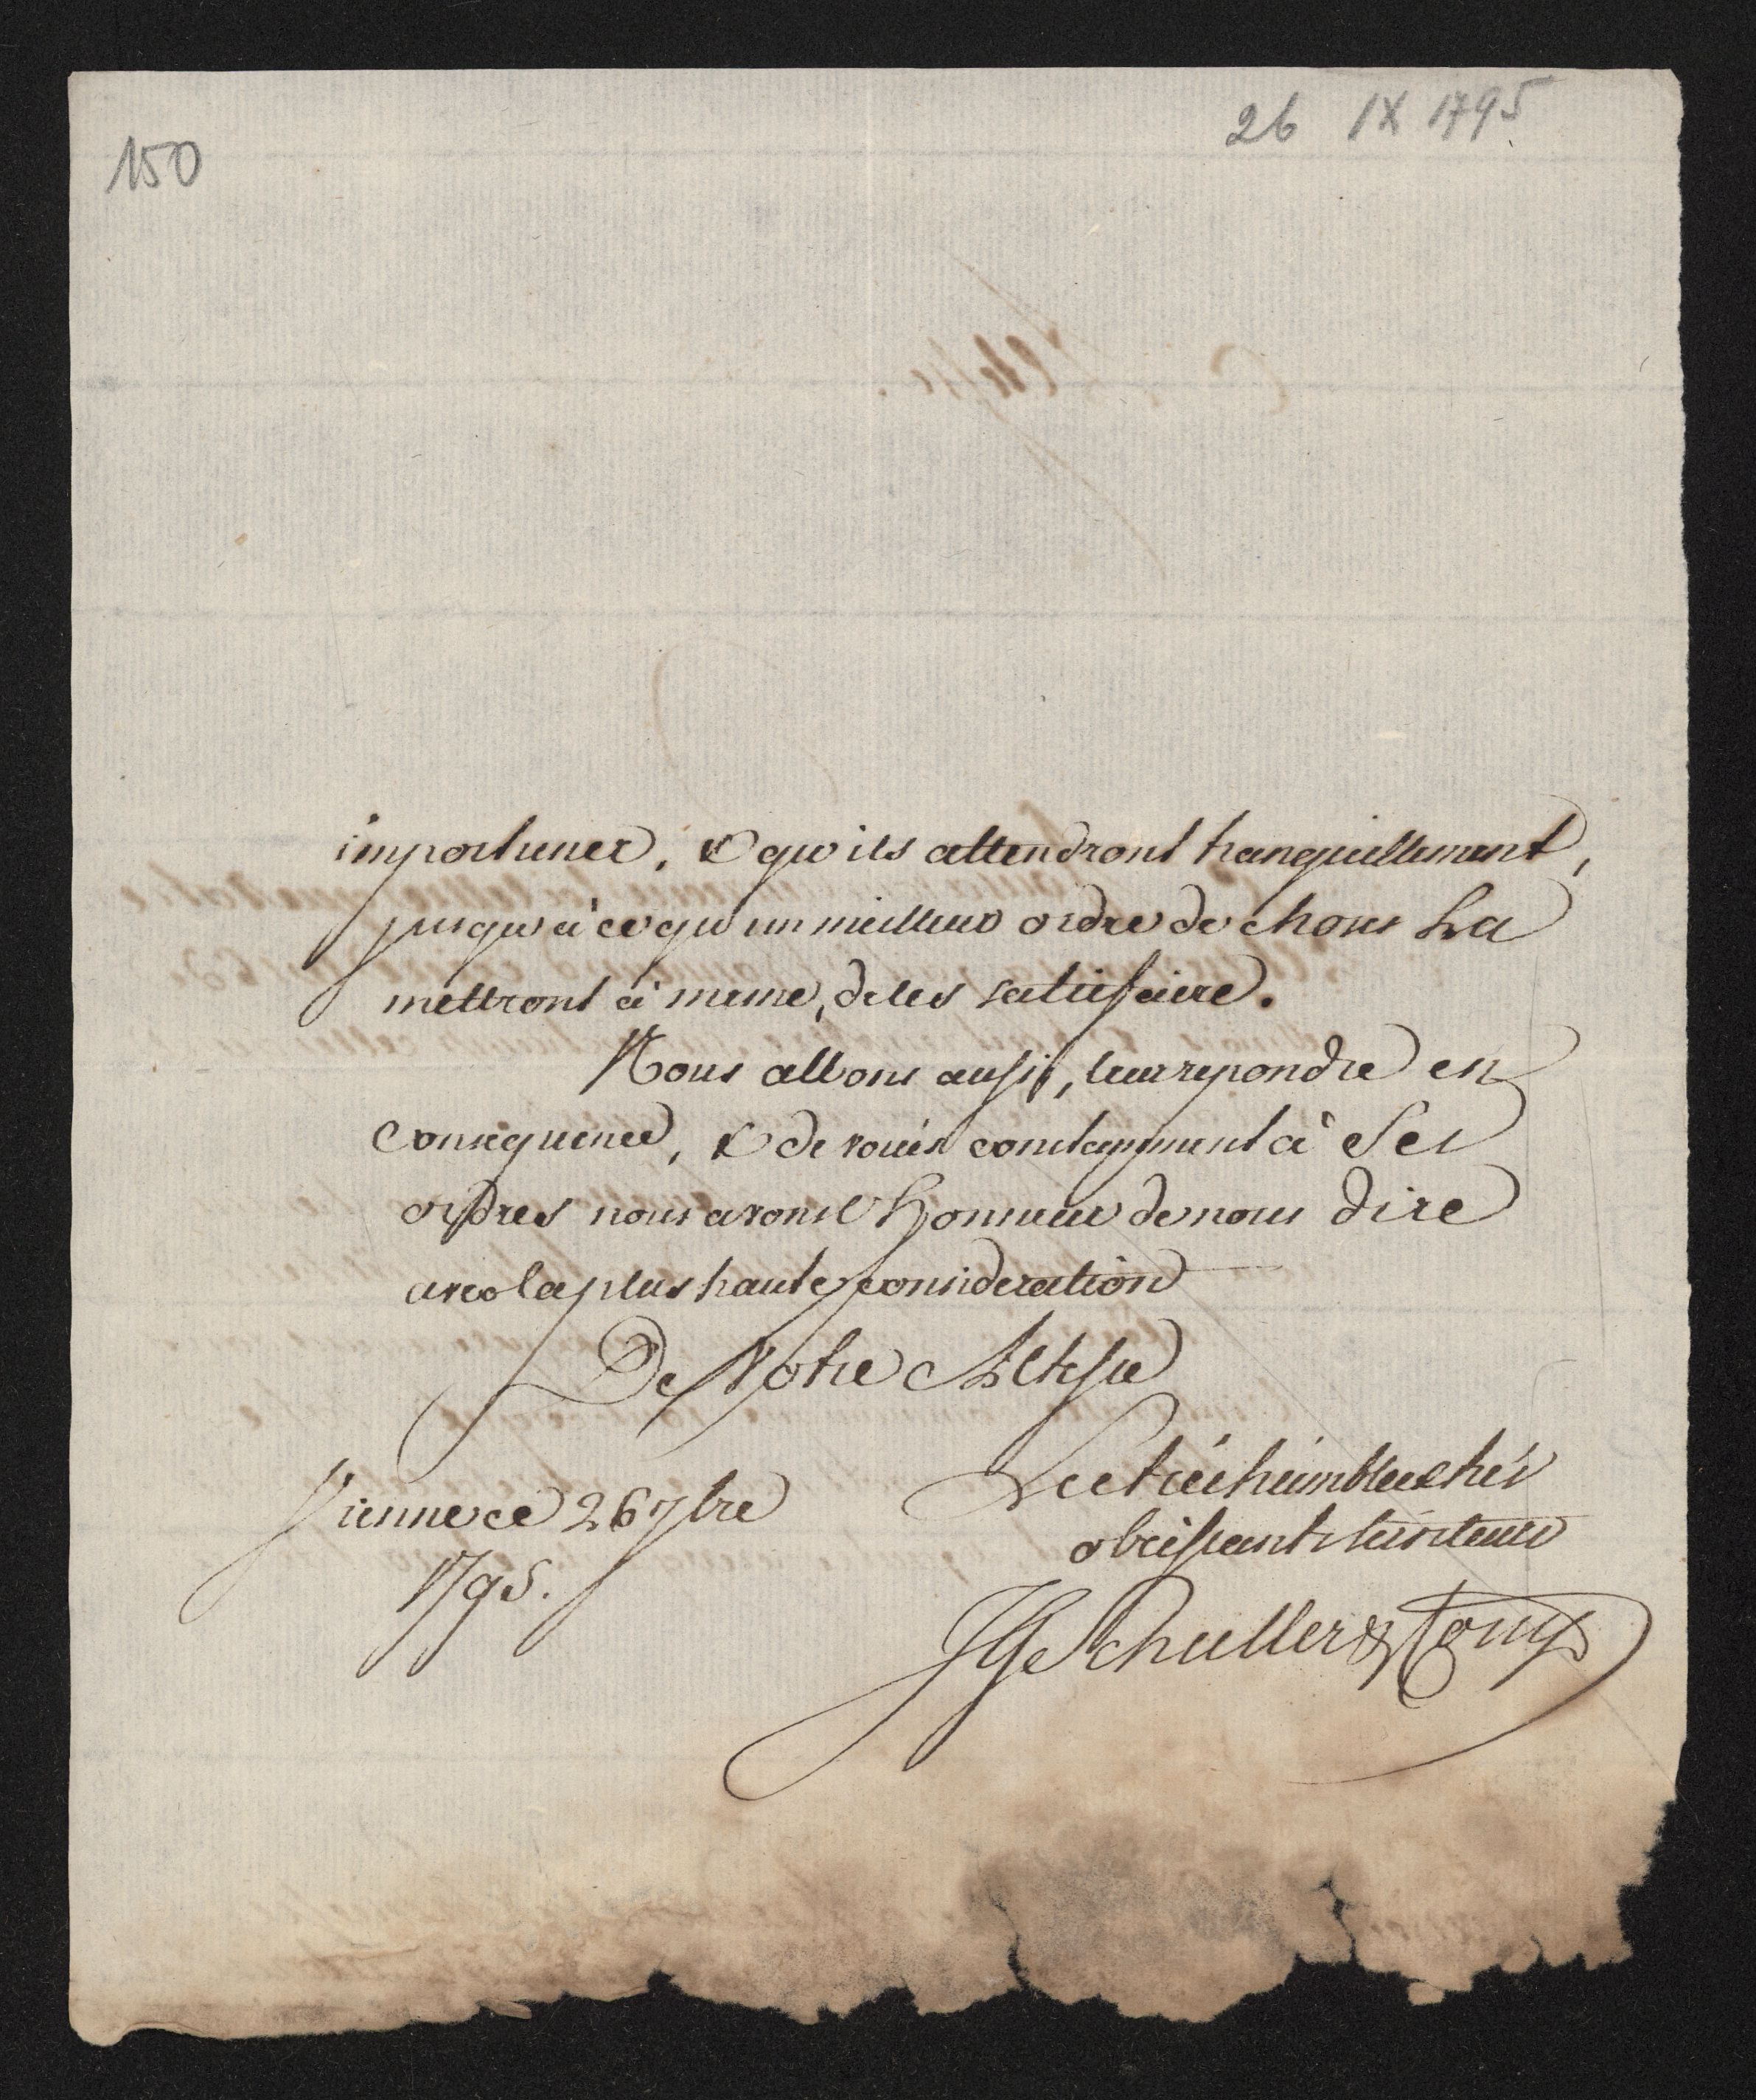 150
26 IX 1795.
importuner, & qu'ils attendront tranquillement,
jusqu'à ce qu'un meilleur ordre de choses La
mettront à meme, de les satisfaire.
Nous allons aussi, leur repondre en
consequence, & devoués constamment à Ses
ordres nous avons l'honneur de nous dire
avec la plus haute consideration
De Votre Altesse
Vienne ce 26 7bre
1795.
Les très humbles & très
obeissants serviteurs
JG Schuller & Comp